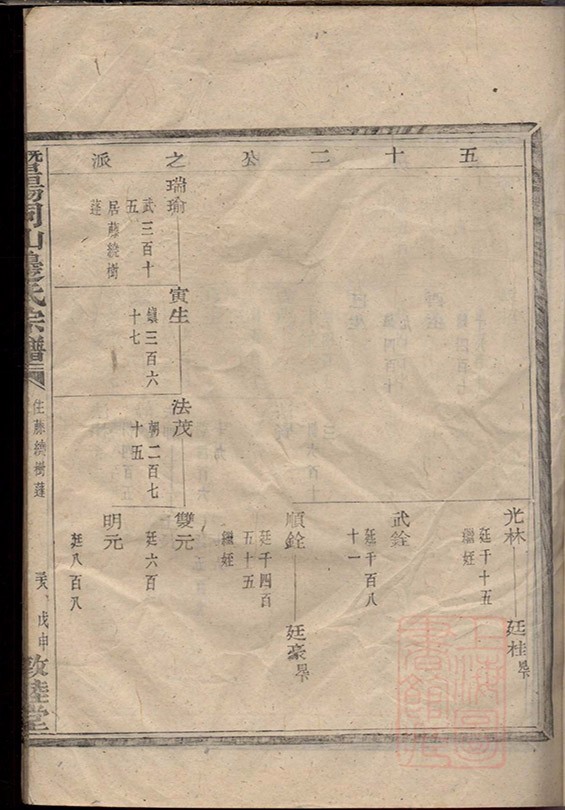 五十二公之派
光林
廷千十五
繼姪
廷桂
武銓
廷千百八
十一
順銓
廷千四百
五十五
繼姪
廷豪
瑞瑜
武三百十
五
居藤繞樹
蓬
寅生
鎮三百六
十七
法茂
朝二百七
十五
雙元
廷六百
明元
廷八百八
暨陽同山邊氏宗譜
住藤繞樹蓬
戊申
敦睦堂